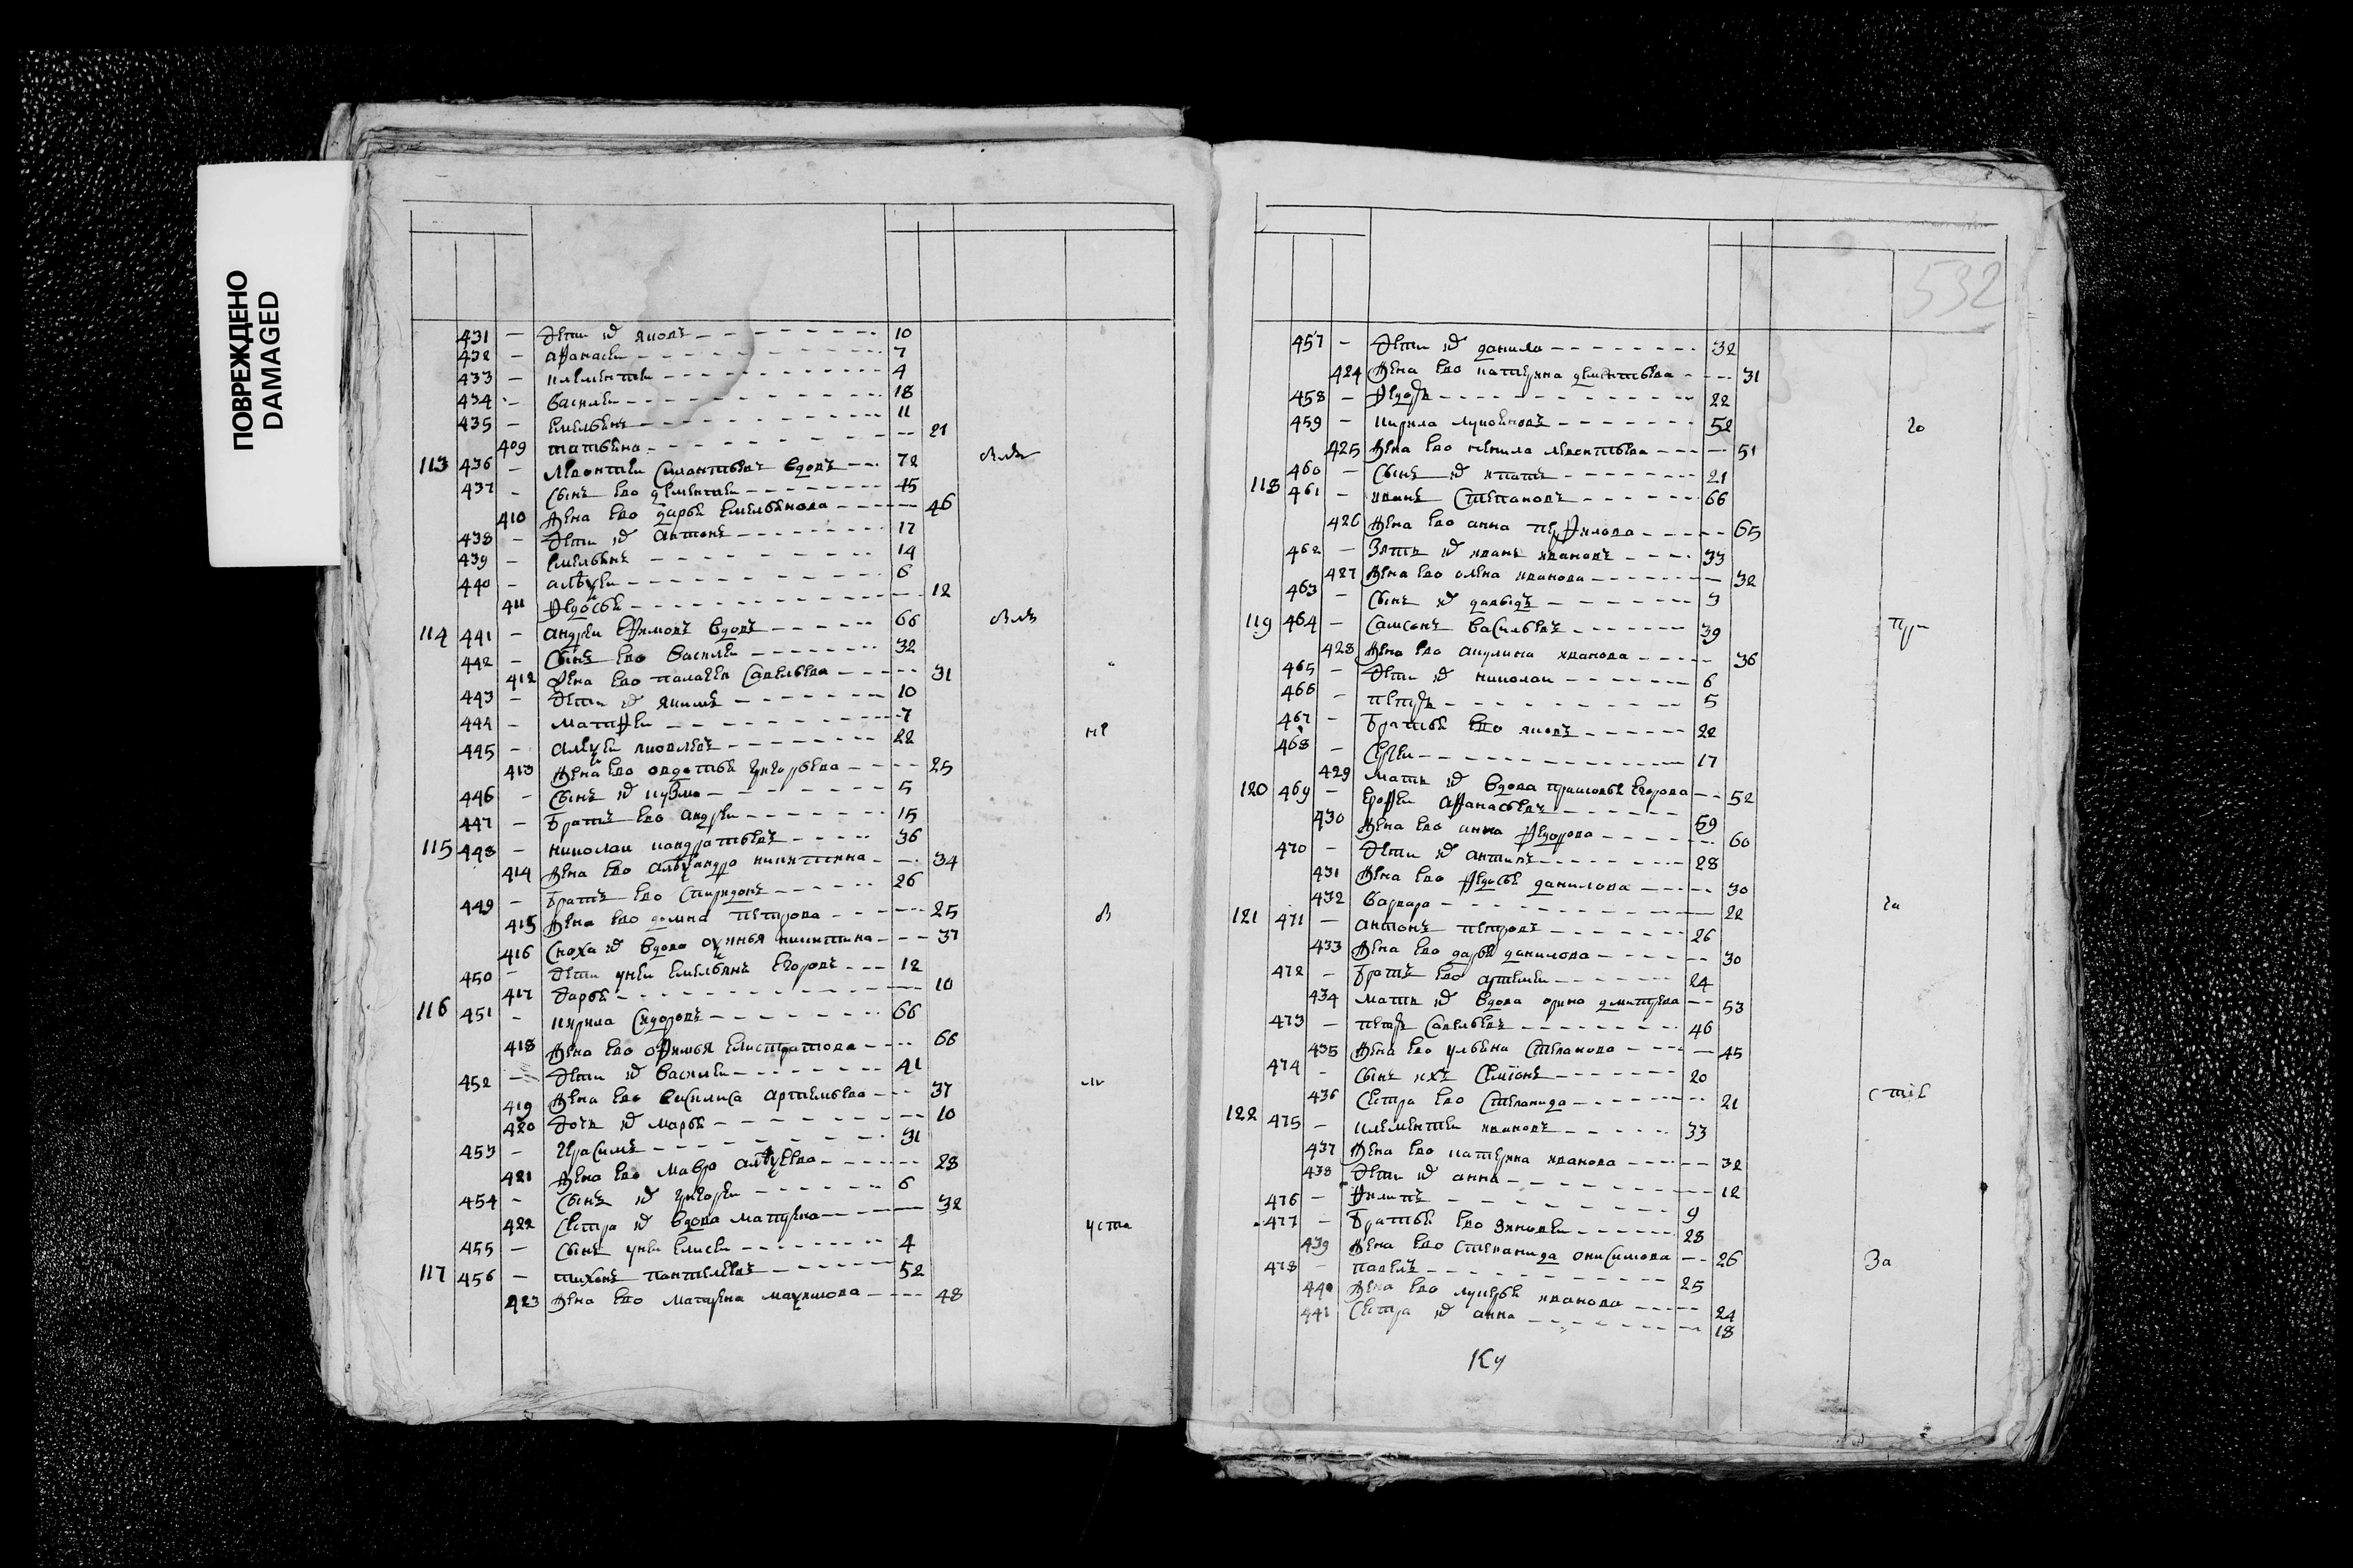 ПОВРЕЖДЕНО
DAMAGED
431 — Дети их яковъ 10
432 — афанасеи 7
433 — клементеи 4
434 — василеи 18
435 — емельянъ 11
409 татьяна 21
113 436 — леонтеи силантьевъ вдовъ 72
437 — сынъ ево дементеи 45
410 жена ево дарья емельянова 46
438 — Дети их антонъ 17
439 — емельянъ 14
440 — алѣксеи 6
411 федосья 12
114 441 — андреи ефимовъ вдовъ 66
442 — сынъ ево василеи 32
412 жена ево палагея савельева 31
443 — Дети их якимъ 10
444 — матфеи 7
445 — алексеи яковлевъ 22 не
413 жена ево авдотья григорьева 25
446 — сынъ их кузма 5
447 — братъ ево андреи 15
115 448 — николаи кондратьевъ 36
414 жена ево александра никитина 34
449 — братъ ево спиридонъ 26
415 жена ево домна петрова 25 в
416 сноха их вдова никитина 37
450 — Дети у неи емельянъ егоровъ 12
417 Дарья 10
116 451 — кирила сидоровъ 66
418 жена ево офимья елистратова 66
452 — Дети их василеи 41
419 жена ево василиса артемьева 37
420 Дочь их марья 10
453 — герасимъ 31
421 жена ево мавра алѣксеева 28
454 — сынъ их григореи 6
422 сестра их вдова матрена 32 уста
455 — сынъ у неи елисеи 4
117 456 — тихонъ пантелеевъ 52
423 жена ево матрена максимова 48
532
457 — Дети их данила 32
424 жена ево катерина дементьева 31
458 — федоръ 22
459 — кирила лукояновъ 52 го
425 жена ево ненила леонтьева 51
460 — сынъ их ипатъ 21
118 461 — иванъ степановъ 66
426 жена ево анна перфилова 65
462 — зять их иванъ ивановъ 33
427 жена ево олена иванова 32
463 — сынъ их давыдъ 3
119 464 — самсонъ васильевъ 39 при
428 жена ево акулина иванова 36
465 — Дети их николаи 6
466 — петръ 5
467 — братья ево яковъ 22
468 — сергеи 17
429 мать их вдова прасковья егорова 52
120 469 — ерофеи афанасьевъ 59
430 жена ево анна федорова 60
470 — Дети их антипъ 28
431 жена ево федосья данилова 30
432 варвара 22
121 471 — антонъ петровъ 26
433 жена ево дарья данилова 30
472 — братъ ево артемеи 24
434 мать их вдова орина дмитрева 53
473 — петръ савельевъ 46
435 жена ево ульяна степанова 45
474 — сынъ ихъ семіонъ 20
436 сестра ево степанида 21 стіе
122 475 — клементеи ивановъ 33
437 жена ево катерина иванова 32
438 Дети их анна 12
476 — филипъ 9
477 — братья ево зиновеи 28
439 жена ево степанида онисимова 26
478 — павелъ 25 За
440 жена ево лукерья иванова 24
441 сестра их анна 18
Ку